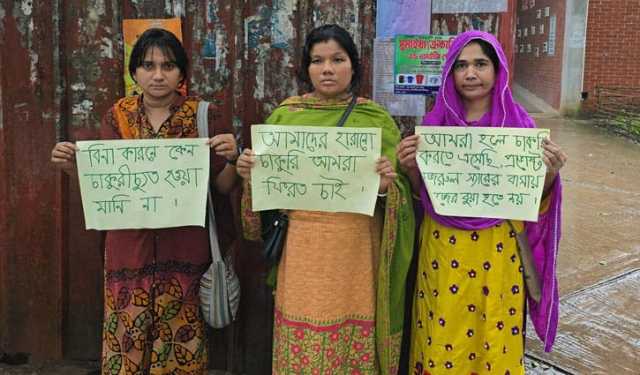 বিনা কারনে কেন
চাকুরীচ্যুত হওয়া
মানি না ।
আমাদের হারানো
চাকুরি আমরা
ফিরত চাই ।
আমরা হলে চাকুরি
করতে এসেছি, প্রভোস্ট
নজরুল স্যারের বাসায়
কাজের বুয়া হতে নয় ।